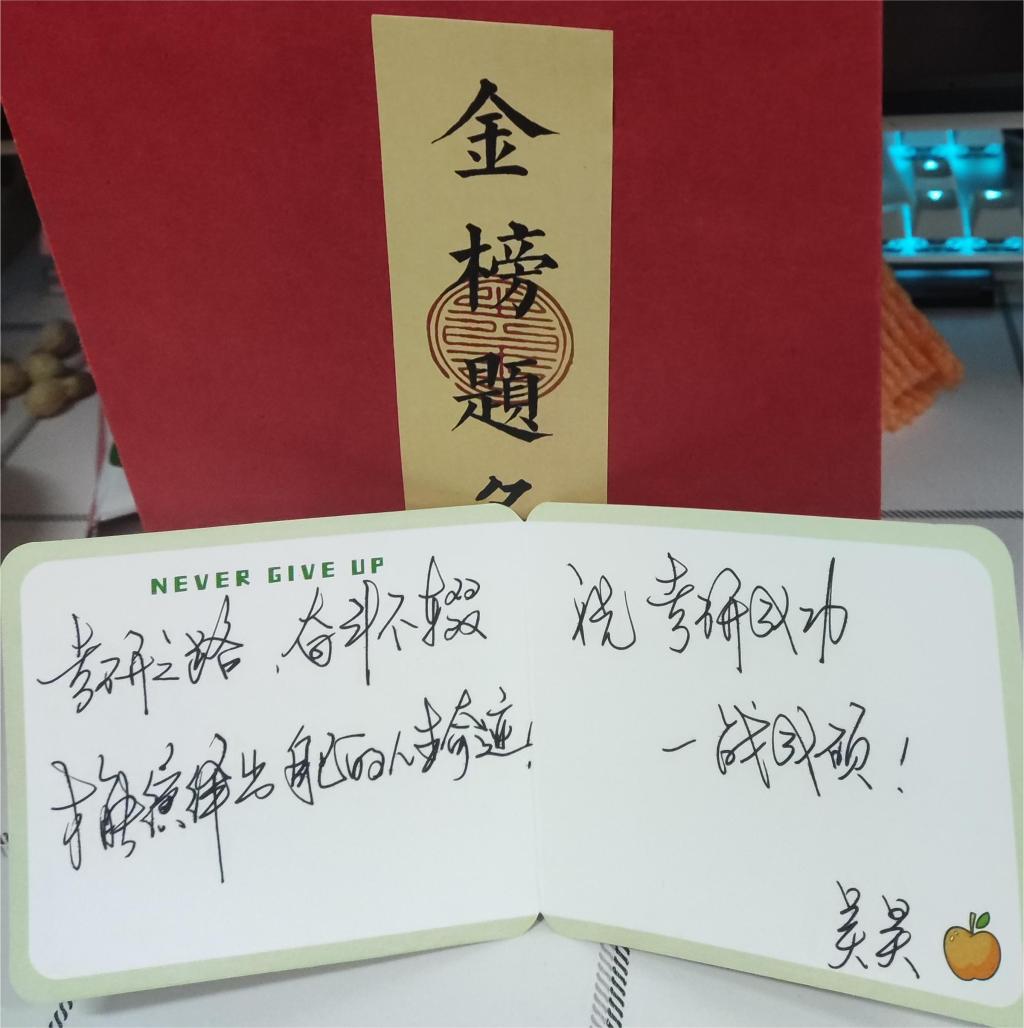 金
榜
題
名
NEVER GIVE UP
考研之路，奋斗不辍
才能演绎出自己的人生奇迹！
祝考研成功
一战成硕！
吴昊